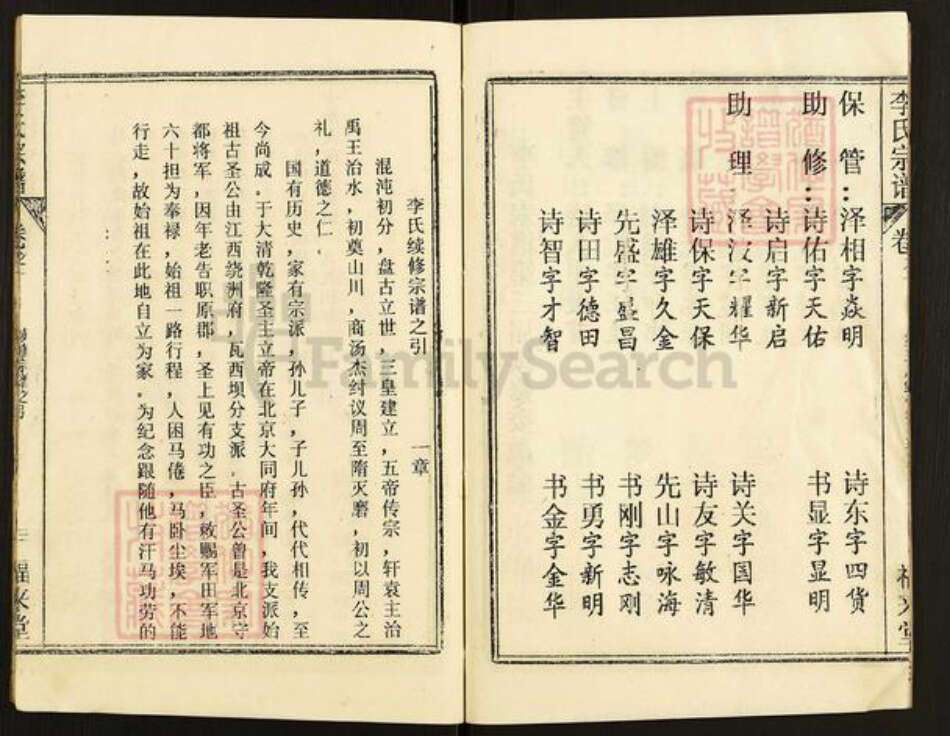 李氏宗谱
保管：泽相字焱明 诗东字四货
助修：诗佑字天佑 书显字显明
诗启字新启
助理：泽汉字耀华 诗关字国华
诗保字天保 诗友字敏清
泽雄字久金 先山字咏海
先盛字盛昌 书刚字志刚
诗田字德田 书勇字新明
诗智字才智 书金字金华
李氏续修宗谱之引 一章
混沌初分，盘古立世，三皇建立，五帝传宗，轩袁主治
禹王治水，初奠山川，商汤杰纣议周至隋灭磨，初以周公之
礼，道德之仁。
国有历史，家有宗派，孙儿子，子儿孙，代代相传，至
今尚成。于大清乾隆圣主立帝在北京大同府年间，我支派始
祖古圣公由江西绕洲府，瓦西坝分支派。古圣公曾是北京守
都将军，因年老告职原郡，圣上见有功之臣，敕赐军田军地
六十担为奉禄，始祖一路行程，人困马倦，马卧尘埃，不能
行走，故始祖在此地自立为家。为纪念跟随他有汗马功劳的
三
FamilySearch